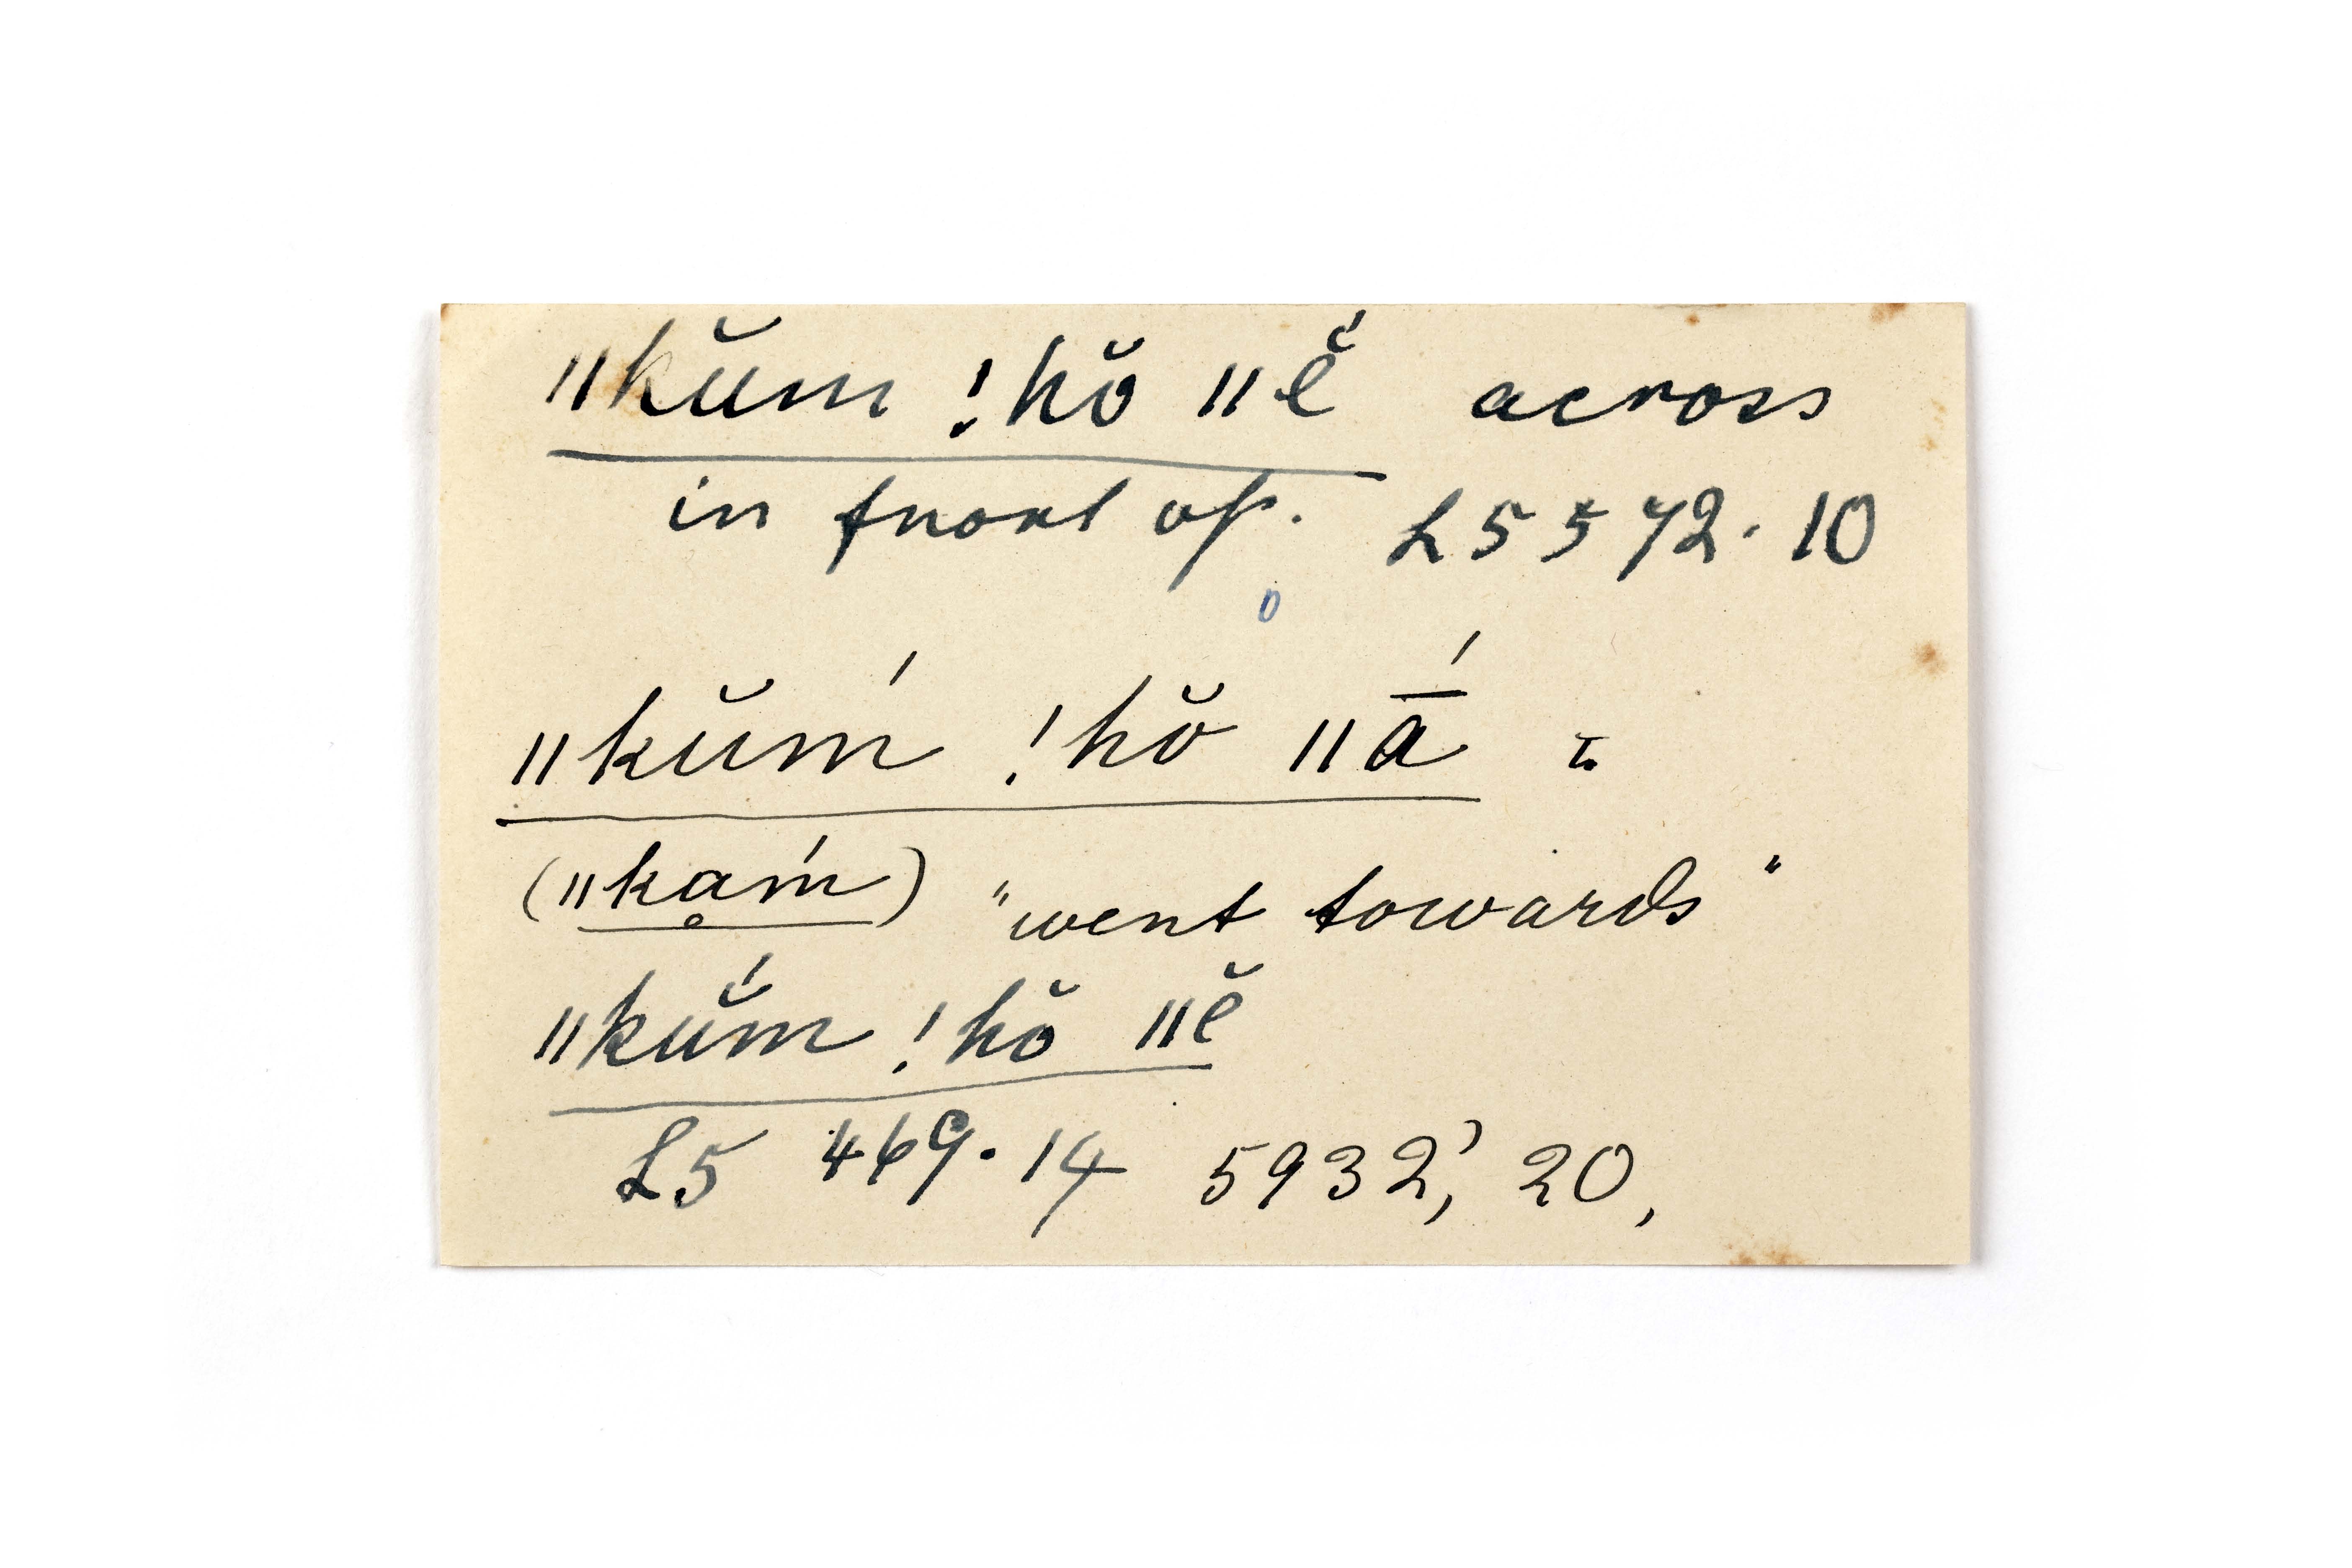 ǁkŭm ǃhŏ ǁĕ́ across
in front of. L5 572. 10
0
ǁkŭḿ ǃhŏ ǁā́ =
(ǁkạḿ) "went towards"
ǁkŭ́m ǃhŏ ǁĕ
L5 469. 14 5932,' 20,